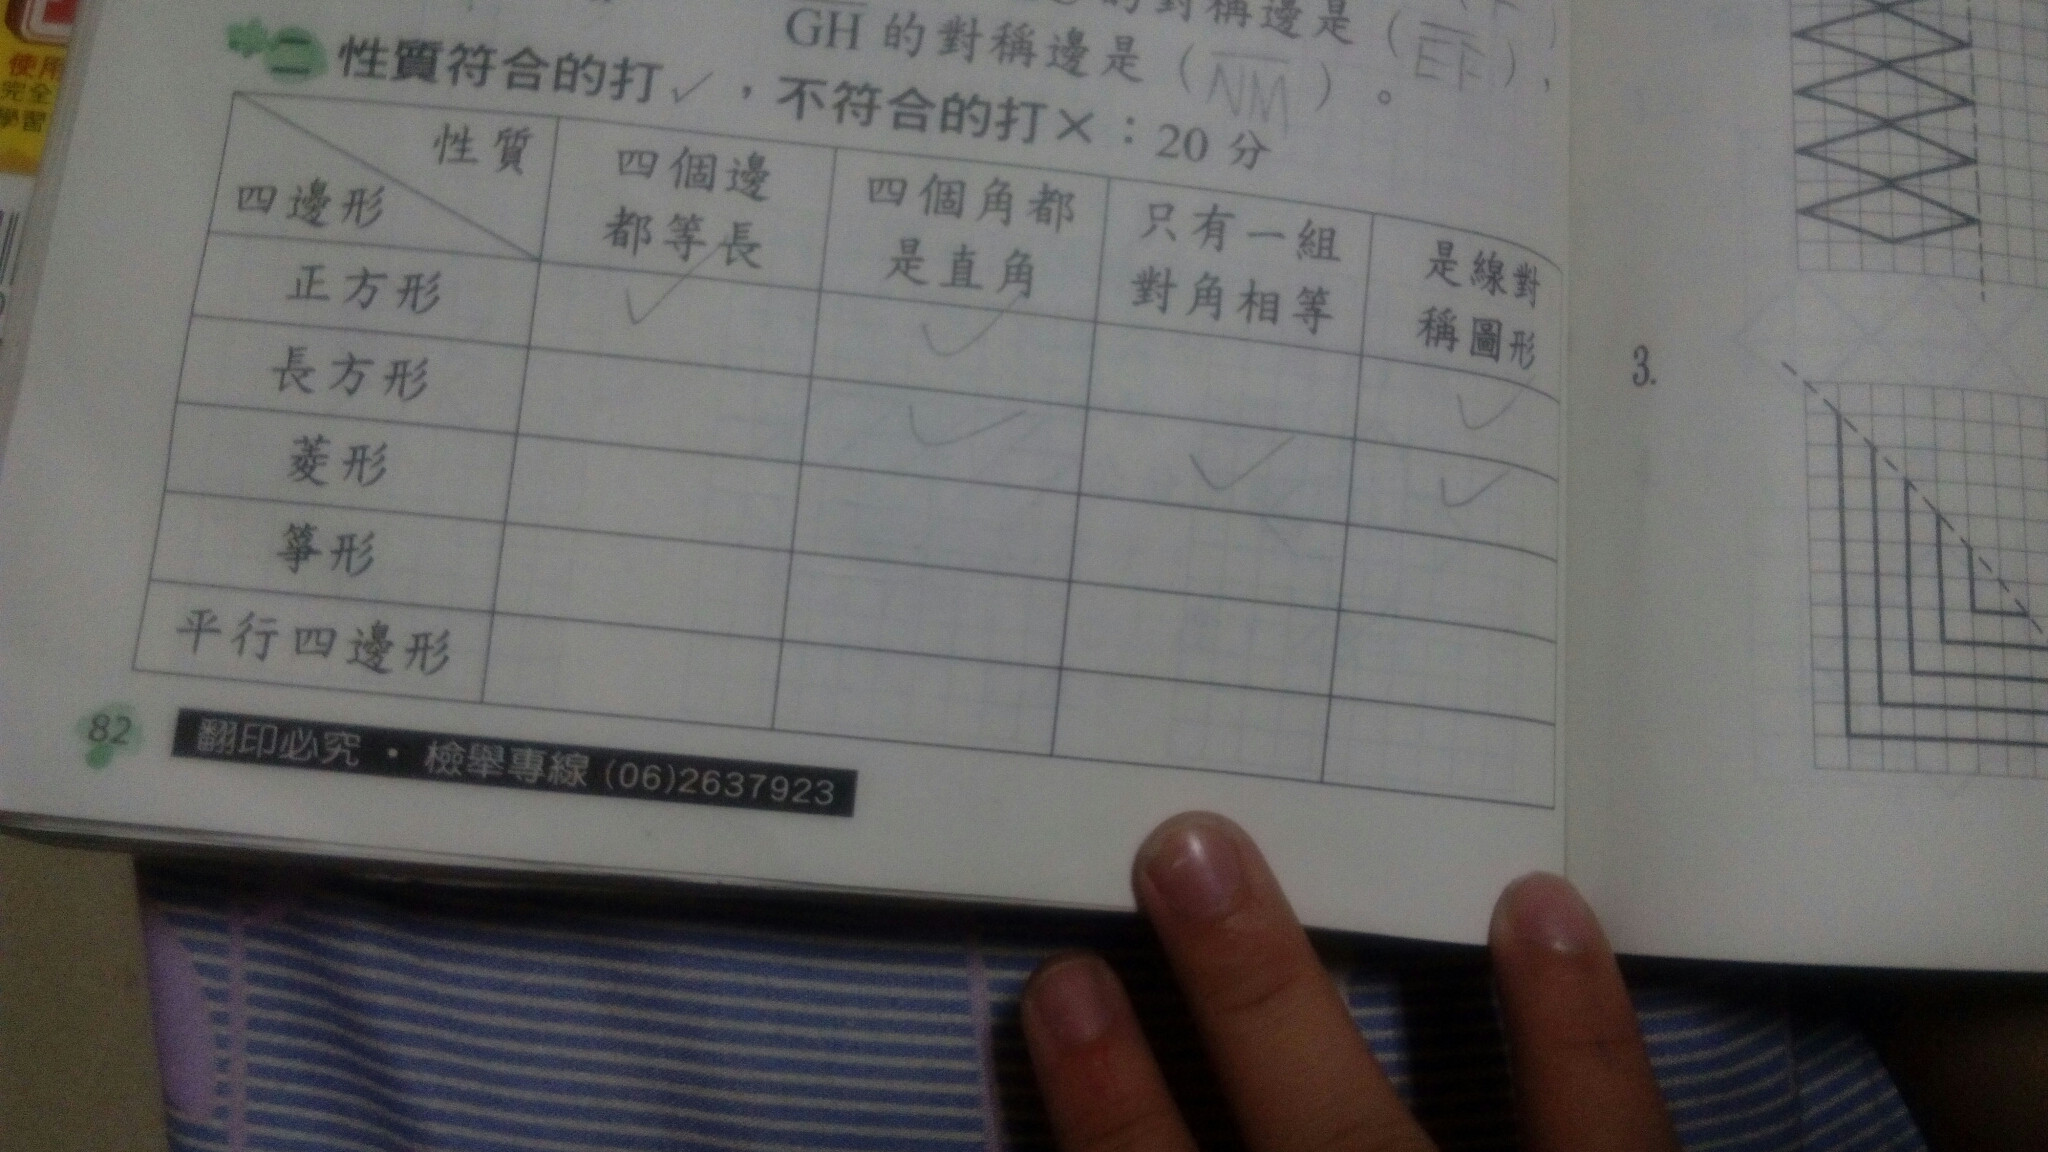 使用
完全
學習
的對稱邊是(EF),
GH 的對稱邊是(NM)。
二 性質符合的打✓,不符合的打×:20 分
性質
四邊形
四個邊
都等長
四個角都
是直角
只有一組
對角相等
是線對
稱圖形
正方形 ✓ ✓ ✓
長方形 ✓ ✓ ✓
菱形
箏形
平行四邊形
82
翻印必究・檢舉專線 (06)2637923
3.